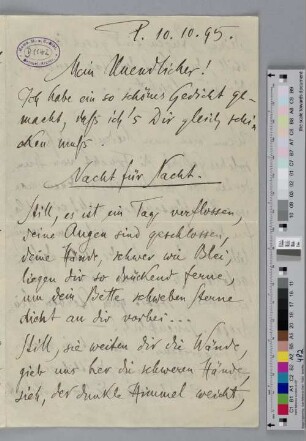 P. 10.10.95.
Mein Unendlicher!
Ich habe ein so schönes Gedicht ge-
macht, daß ich's Dir gleich schi-
cken muß.
Nacht für Nacht.
Still, es ist ein Tag verflossen,
deine Augen sind geschlossen,
deine Hände, schwer wie Blei,
liegen dir so drückend ferne,
um dein Bette schweben Sterne
dicht an dir vorbei...
Still, sie weiten dir die Wände,
gieb uns her die schweren Hände,
sieh, der dunkle Himmel weicht,